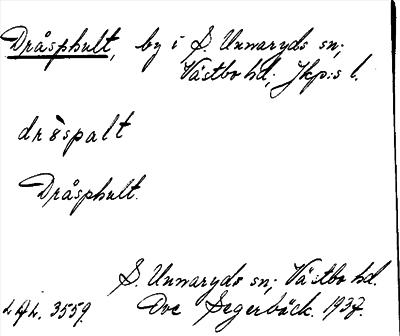 Dråsphult, by i S. Unnaryds sn;
Västbo hd; Jkp:s l.
dråspalt
Dråsphult.
S. Unnaryds sn; Västbo hd.
L.A.L. 3559. Ove Segerbäck. 1937.